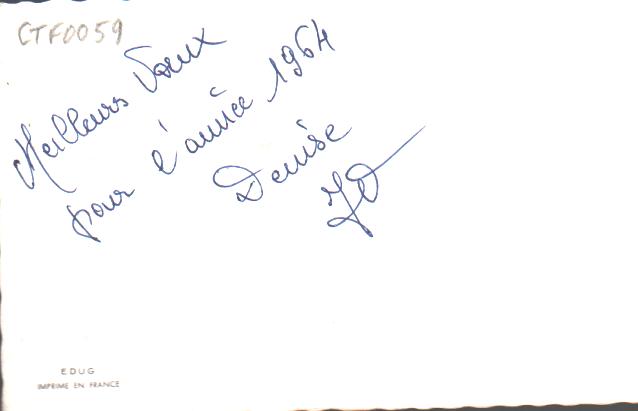 CTF0059
Meilleurs Vœux
pour l'année 1964
Denise
EDUG
IMPRIME EN FRANCE